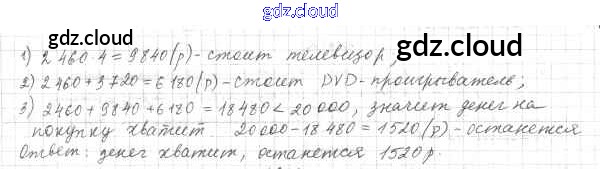 gdz.cloud
gdz.cloud
1) 2 460 · 4 = 9840 (р) - стоит телевизор;
gdz.cloud
2) 2 460 + 3 720 = 6 180 (р) - стоит DVD-проигрыватель;
3) 2460 + 9840 + 6180 = 18 480 < 20 000, значит денег на
покупку хватит. 20 000 - 18 480 = 1520 (р) - останется
Ответ: денег хватит, останется 1520 р.
gdz.cloud
gdz.cloud